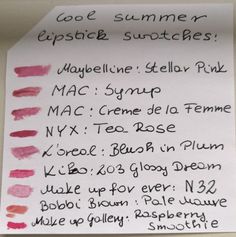 Cool summer
lipstick swatches:
Maybelline: Stellar Pink
MAC: Syrup
MAC: Creme de la Femme
NYX: Tea Rose
L'oreal: Blush in Plum
Kiko: 203 Glossy Dream
Make up for ever: N32
Bobbi Brown: Pale Mauve
Make up Gallery: Raspberry
smoothie